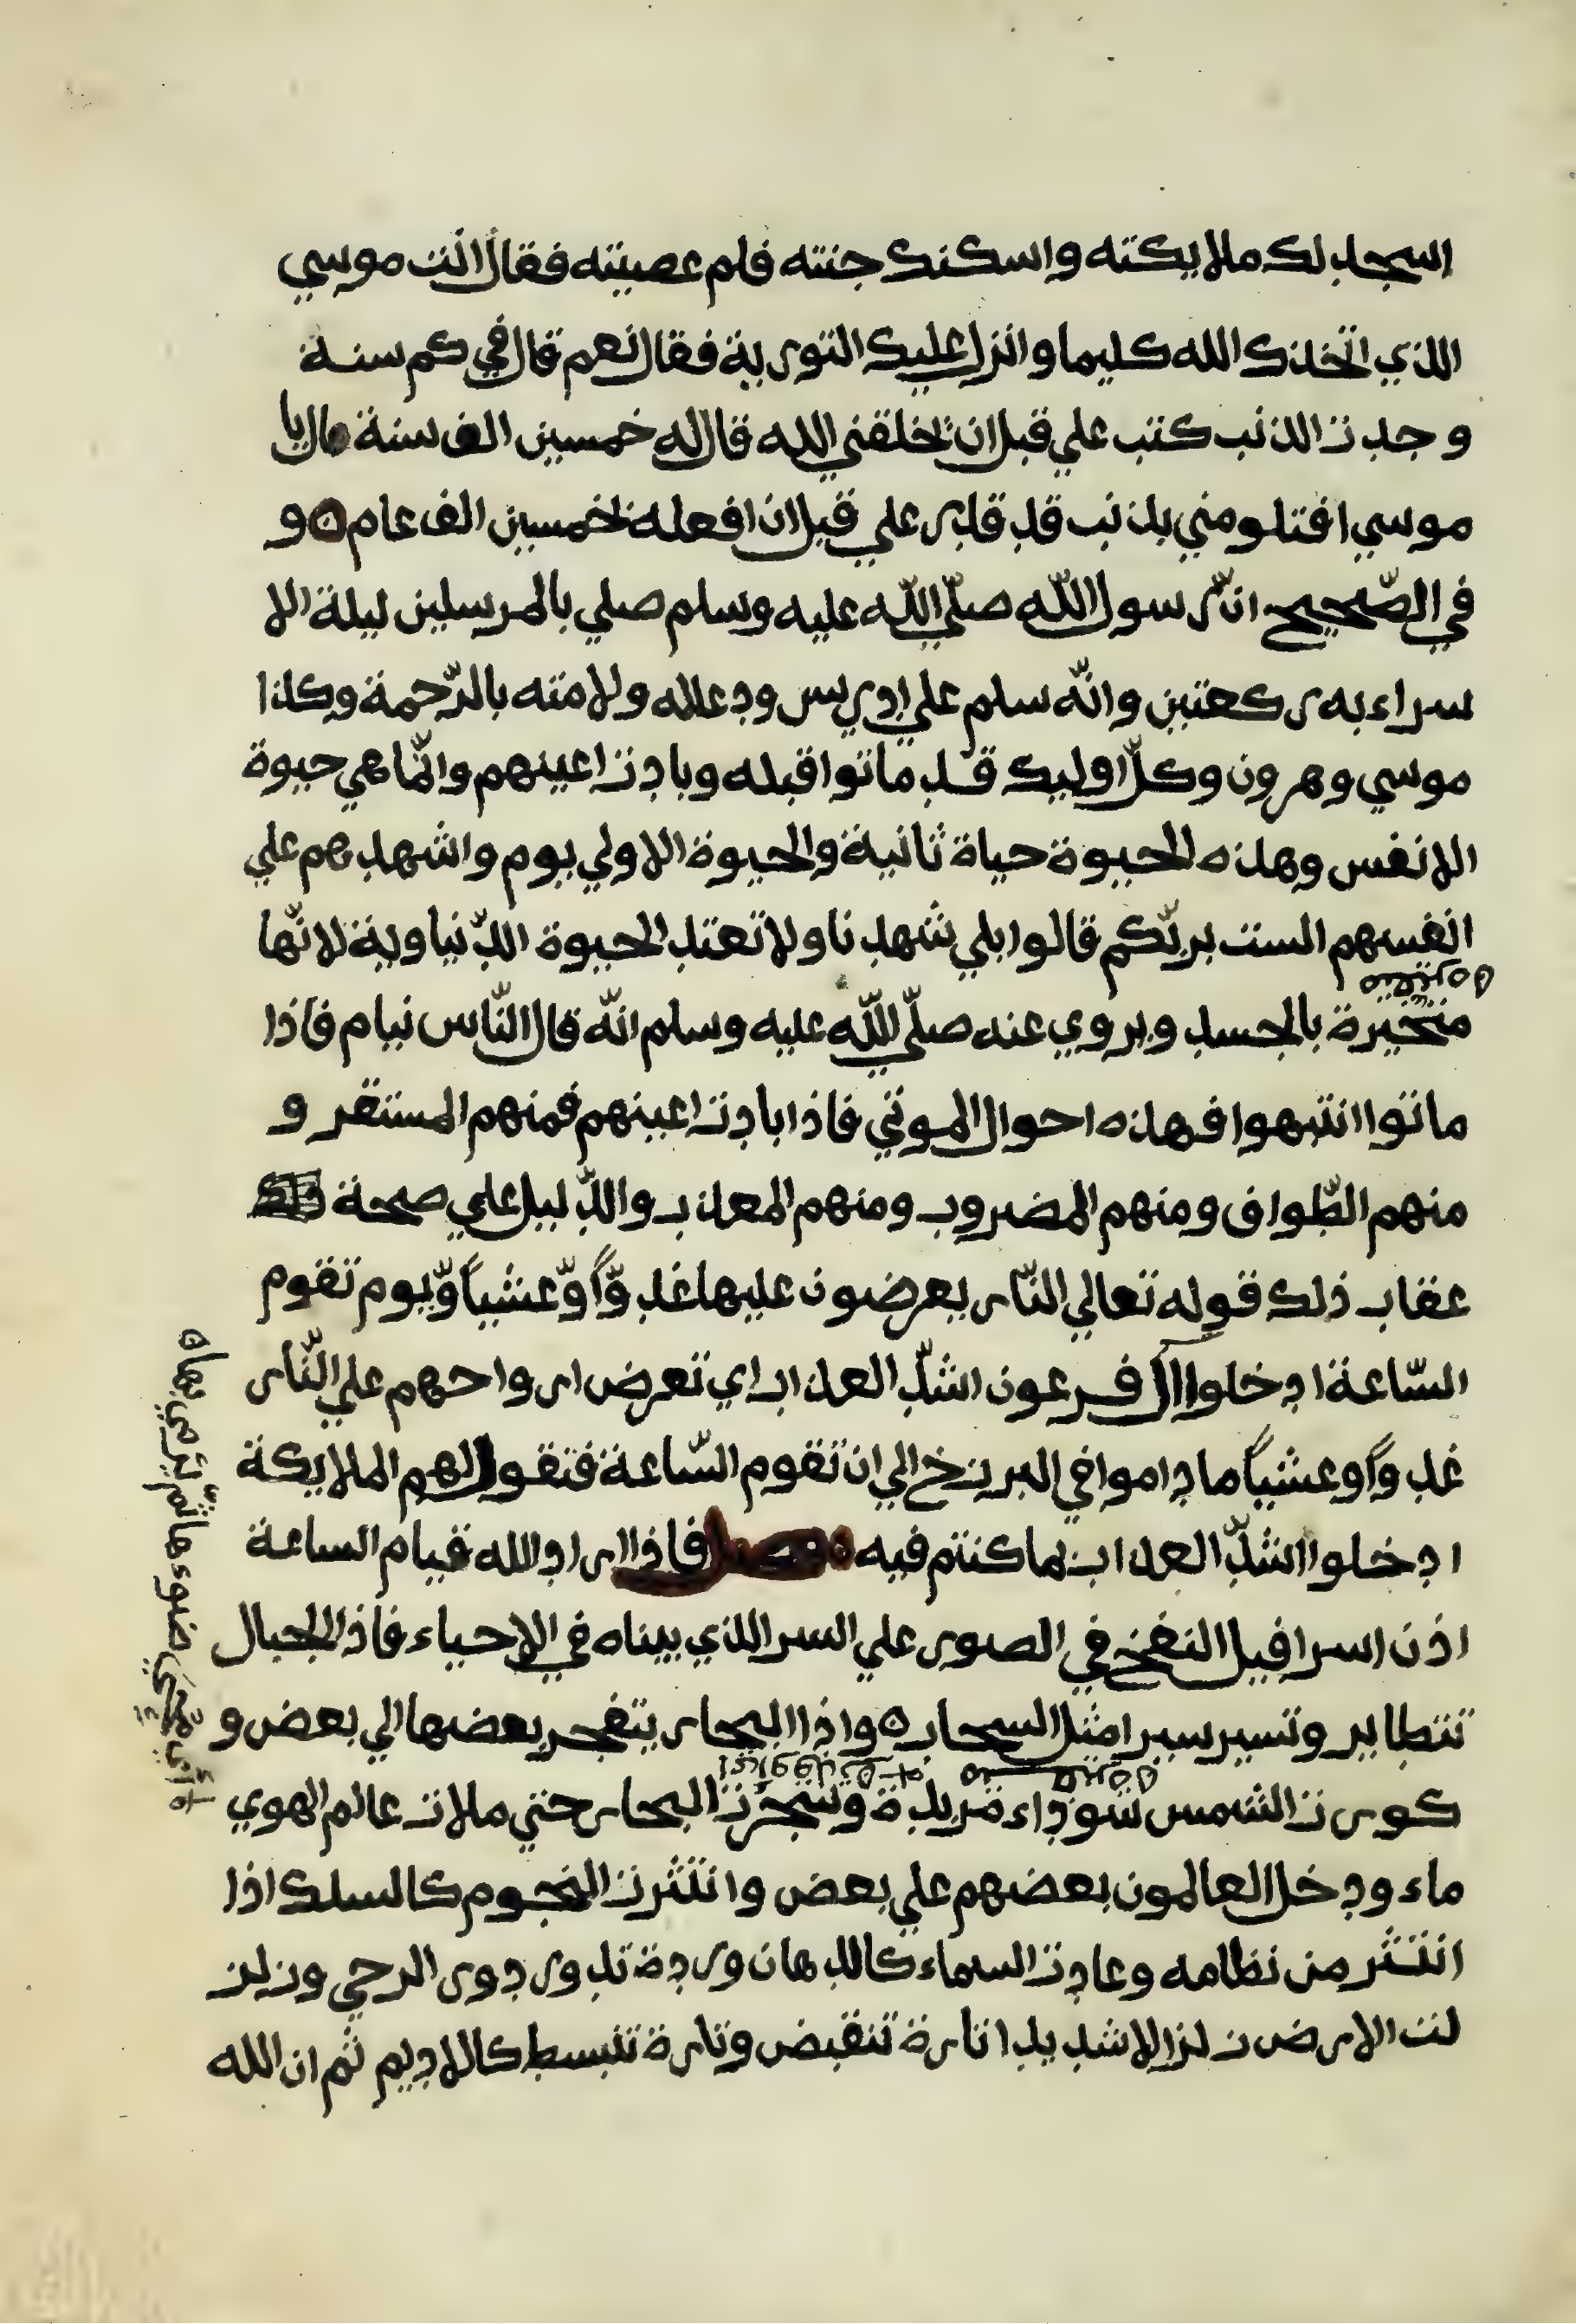 اسجد لك ملايكته واسكنك جنته فلم عصيته فقال انت موسي
اللذي اتخذك الله كليما وانزل عليك التورىة فقال نعم قال في كم سنة
وجدت الذنب كتب علي قبل ان تخلقني الله قال له خمسين الف سنة قال يا
موسي افتلومني بذنب قد قدر علي قبل ان افعله بخمسين الف عام و
في الصّحيح انّ رسول اللّه صلّي اللّه عليه وسلم صلي بالمرسلين ليلة الا
سراء به ركعتين وانّه سلم علي ادريس ودعاله ولامته بالرّحمة وكذا
موسي وهرون وكلّ اوليك قد ماتوا قبله وبادت اعينهم وانّما هي حيوة
الانفس وهذه الحيوة حياة ثانية والحيوة الاولي يوم واشهدهم علي
انفسهم الست بربّكم قالوا بلي شهدنا ولا تعتد الحيوة الدّنياوية لانّها
متحيرة بالجسد ويروي عنه صلّي اللّه عليه وسلم انّه قال النّاس نيام فاذا
ماتوا انتبهوا فهذه احوال الموتي فاذا بادت اعينهم فمنهم المستقر و
منهم الطّواف ومنهم المضروب ومنهم المعذب والدّليل علي صحة
عقاب ذلك قوله تعالي النّار يعرضون عليها غدوّاً وّعشياً وّيوم تقوم
السّاعة ادخلوا ال فرعون اشدّ العذاب اي تعرض ارواحهم علي النّار
غدواً وعشياً ما داموا في البرزخ الي ان تقوم السّاعة فتقول لهم الملايكة
ادخلوا اشدّ العذاب بما كنتم فيه فصل فاذا اراد الله قيام الساعة
اذن اسرافيل النفخ في الصور علي السر اللذي بيناه في الاحياء فاذ الجبال
تتطاير وتسير سيرا مثل السحاب واذا البحار يتفجر بعضها الي بعض و
كورت الشمس سوداء مزيدة وسجرت البحار حتي ملات عالم الهوي
ماء ودخل العالمون بعضهم علي بعض وانتثرت النجوم كالسلك اذا
انتثر من نظامه وعادت السماء كالدهان وردة تدور دور الرحي وزلز
لت الارض زلزالا شديدا تارة تنقبض وتارة تنبسط كالاديم ثم ان الله